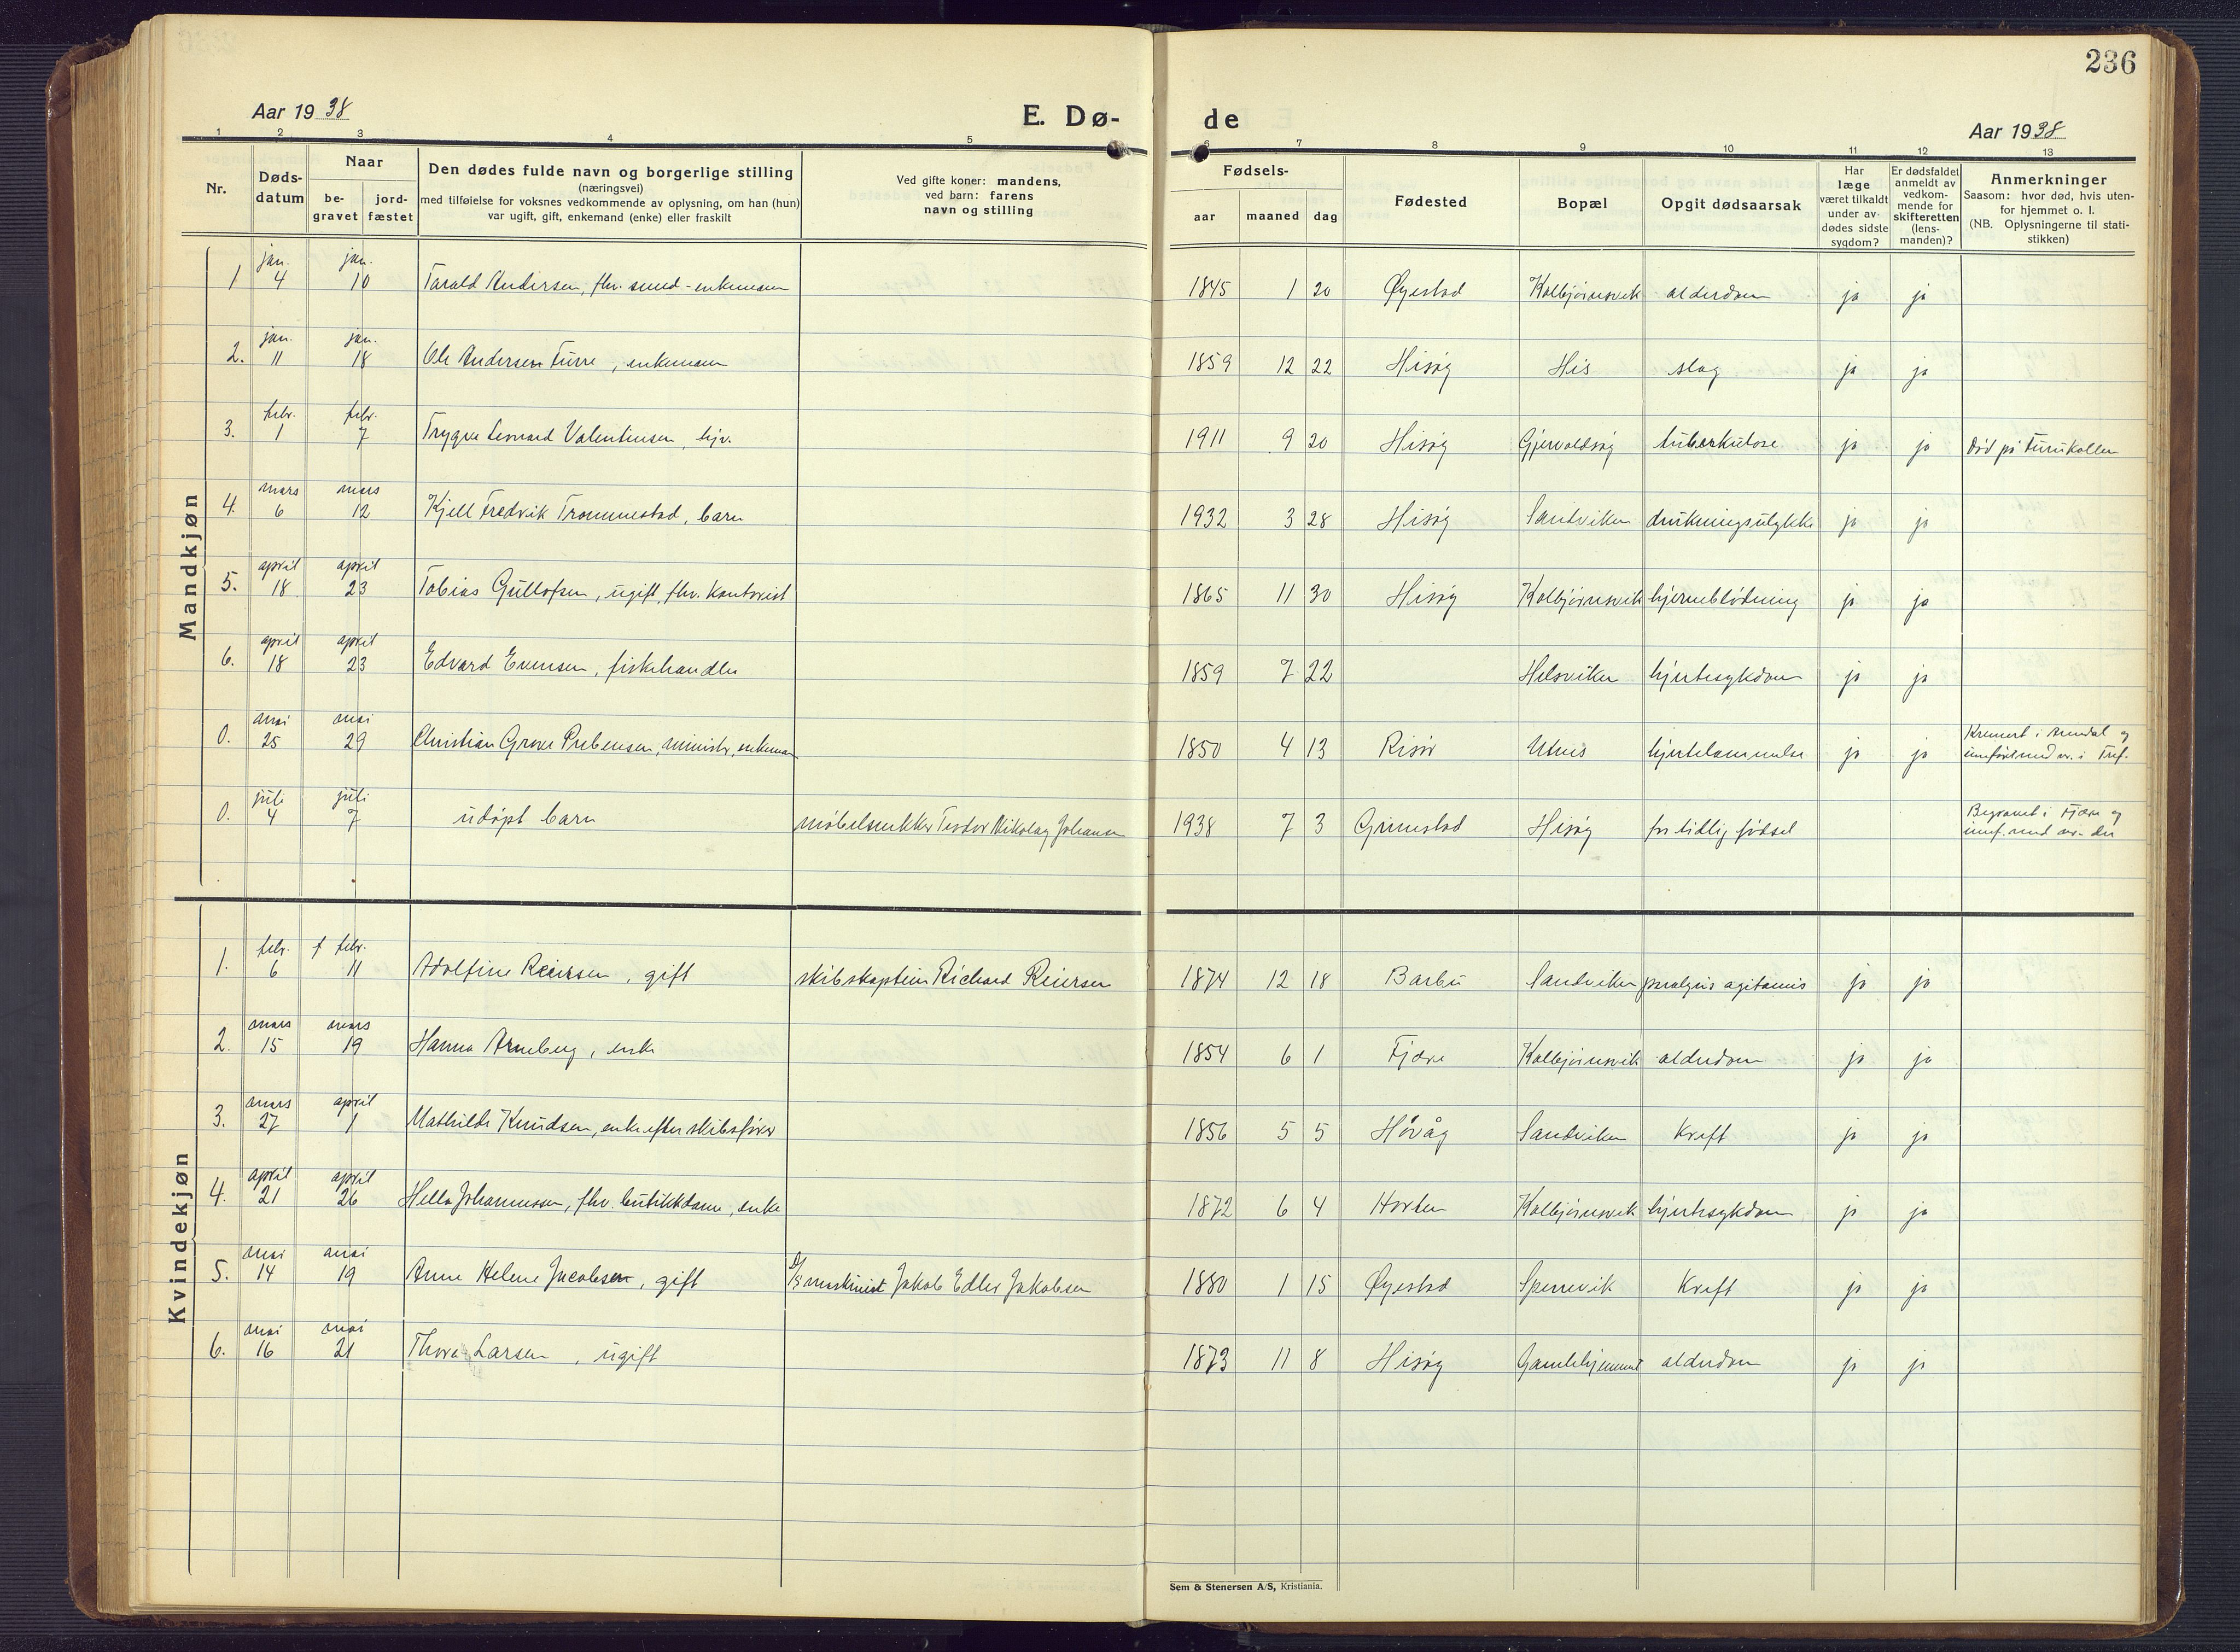 236
Aar 1938
E. Dø-
de
Aar 1938
1 2 3 4 5 6 7 8 9 10 11 12 13
Nr.
Døds-
datum
Naar
be-
gravet
jord-
fæstet
Den dødes fulde navn og borgerlige stilling
(næringsvei)
med tilføielse for voksnes vedkommende av oplysning, om han (hun)
var ugift, gift, enkemand (enke) eller fraskilt
Ved gifte koner: mandens,
ved barn: farens
navn og stilling
Fødsels-
aar maaned dag
Fødested
Bopæl
Opgit dødsaarsak
Har
læge
været tilkaldt
under av-
dødes sidste
sygdom?
Er dødsfaldet
anmeldt av
vedkom-
mende for
skifteretten
(lens-
manden)?
Anmerkninger
Saasom: hvor død, hvis uten-
for hjemmet o. l.
(NB. Oplysningerne til stati-
stikken)
Mandkjøn
jan. jan.
1 4 10 Tarald Andersen, fhv. smed - enkemann 1845 1 20 Øyestad Kolbjørnsvik alderdom ja ja
jan. jan.
2. 11 18 Ole Andersen Furre, enkemann 1859 12 22 Hisøy His slag ja ja
febr. febr.
3. 1 7 Trygve Leonard Valentinsen, 1911 9 20 Hisøy Gjervoldsøy tuberkulose ja ja Død på Furukollen
mars mars
4. 6 12 Kjell Fredrik Trommestad, barn 1932 3 28 Hisøy Sandviken drukningsulykke ja ja
april april
5. 18 23 Tobias Gullofsen, ugift, fhv. kontorist 1865 11 30 Hisøy Kolbjørnsvik hjerneblødning ja ja
april april
6. 18 23 Edvard Evensen, fiskehandler 1859 7 22 Helsviken hjertesykdom ja ja
mai mai
0. 25 29 Christian Grove Prebensen, ministr, enkeman 1850 4 13 Risør Utnes hjertelammelse ja ja Kremert i Arendal og
innført med nr. i Tref.
juli juli
0. 4 7 udøpt barn møbelsnekker Teodor Nikolay Johansen 1938 7 3 Grimstad Hisøy for tidlig fødsel Begravet i Fjære og
innf. med nr. der
Kvindekjøn
febr. f febr.
1. 6 11 Adolfine Reiersen, gift skibskaptein Richard Reiersen 1874 12 18 Barbu Sandviken paralysis agitansis ja ja
mars mars
2. 15 19 Hanna Arneberg, enke 1854 6 1 Fjære Kolbjørnsvik alderdom ja ja
mars april
3. 27 1 Mathilde Knudsen, enke efter skibsfører 1856 5 5 Høvåg Sandviken Kreft ja ja
april april
4. 21 26 Hella Johannessen, fhv. butikkdame, enke 1872 6 4 Horten Kolbjørnsvik hjertesykdom ja ja
mai mai
5. 14 19 Anne Helene Jacobsen, gift D/S maskinist Jakob Edler Jakobsen 1880 1 15 Øyestad Sperrevik Kreft ja ja
mai mai
6. 16 21 Thora Larsen, ugift 1873 11 8 Hisøy Gamlehjemmet alderdom ja ja
Sem & Stenersen A/S, Kristiania.